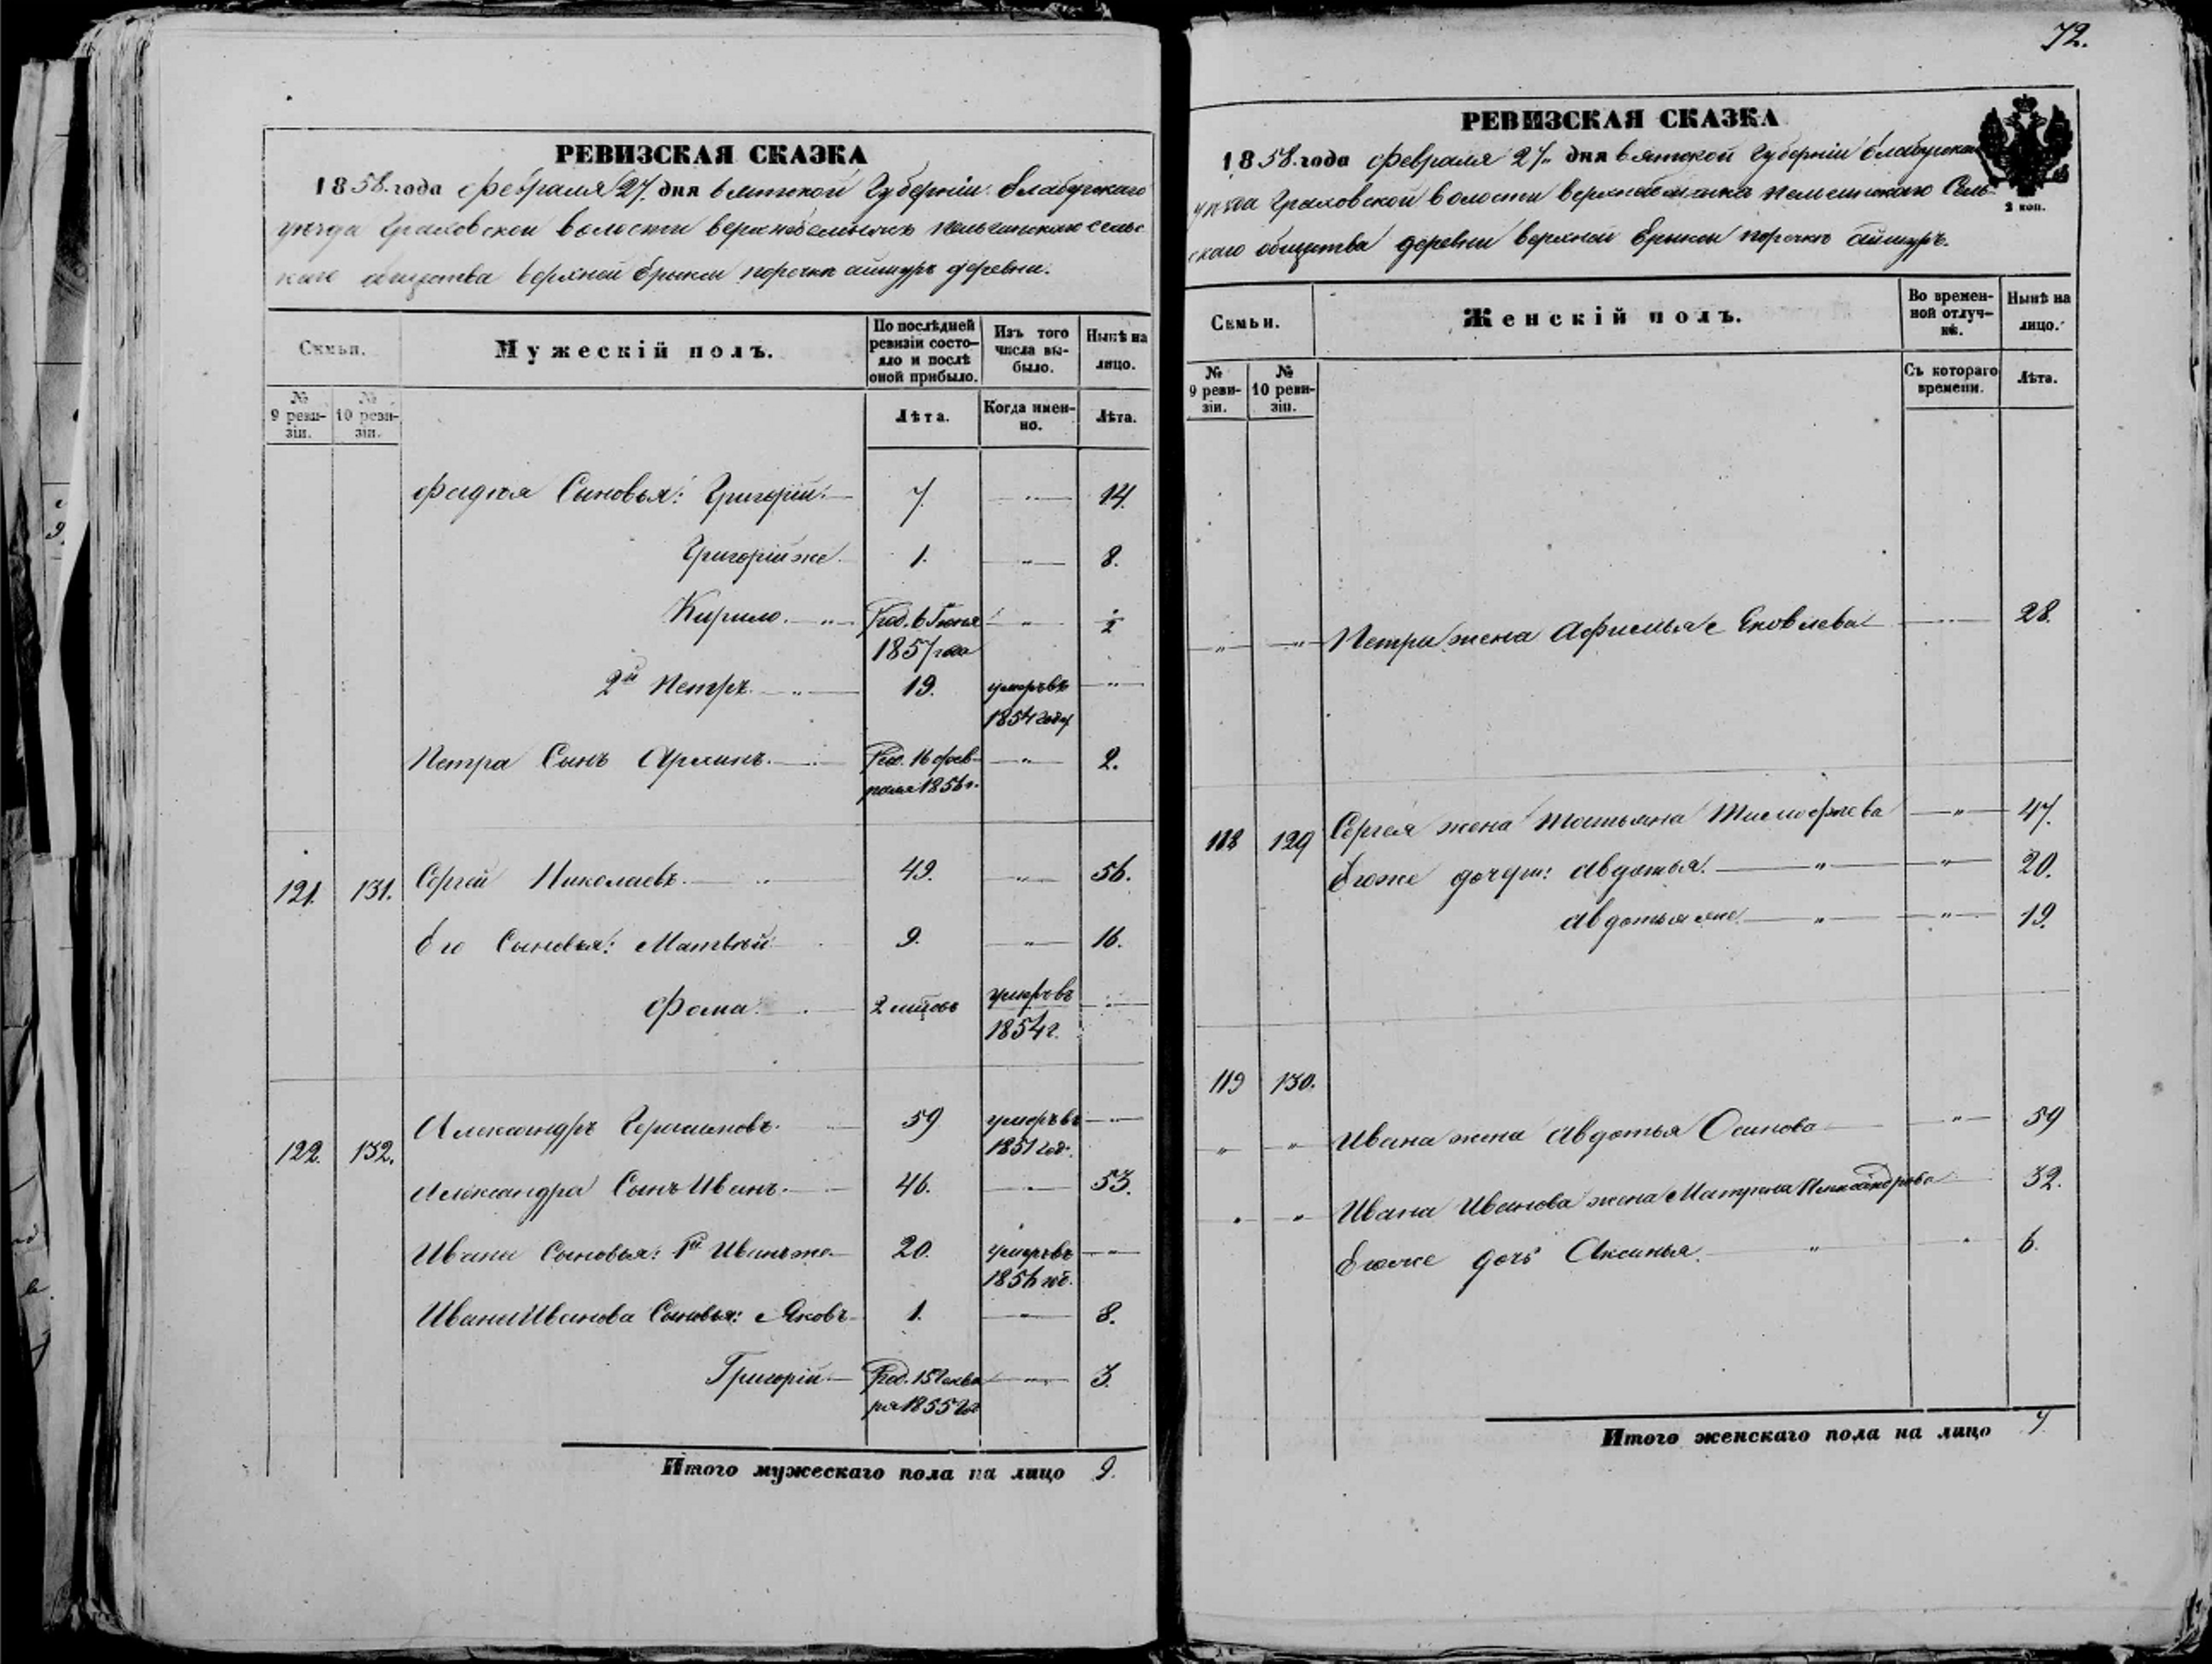 РЕВИЗСКАЯ СКАЗКА
1858. года Февраля 27. дня Вятской Губерніи Елабужскаго
уезда Граховской волости
скаго общества Верхней Ерыксы поречкѣ Айшуръ деревни.
Семьи.
Мужескій полъ.
По послѣдней ревизіи состояло и послѣ оной прибыло.
Изъ того числа выбыло.
Нынѣ на лицо.
№ 9 ревизіи.
№ 10 ревизіи.
Лѣта.
Когда именно.
Лѣта.
Фадея Сыновья: Григорій 7. — „ — 14.
Григорій же 1. — „ — 8.
Кирило. — „ — Род. 6 Іюня — „ — ½
1857 года
2й Петръ — „ — 19. умеръ въ — „ —
1854 году
Петра Сынъ Архипъ. Род. 16 Фев- — „ — 2.
раля 1856 г.
121. 131. Сергей Николаевъ. — „ — 49. — „ — 56.
Его Сыновья: Матвѣй 9. — „ — 16.
Фома 2 умеръ въ
1854 г.
122. 132. Александръ Герасимовъ. 59 умеръ въ — „ —
1851 год.
Александра Сынъ Иванъ. 46. — „ — 53.
Ивана Сыновья: 1й Иванъ же 20. умеръ въ — „ —
1856 год.
Ивана Иванова Сыновья: Яковъ 1. — „ — 8.
Григорій Род. 15 Генва- — „ — 3.
ря 1855 год
Итого мужескаго пола на лицо 9.
72.
РЕВИЗСКАЯ СКАЗКА
1858. года Февраля 27. дня Вятской Губерніи Елабужскаго
уезда Граховской волости Сель-
скаго общества деревни Верхней Ерыксы поречкѣ Айшуръ.
2 коп.
Семьи.
Женскій полъ.
Во временной отлучкѣ.
Нынѣ на лицо.
№ 9 ревизіи.
№ 10 ревизіи.
Съ котораго времени.
Лѣта.
„ „ Петра жена Афимья Яковлева — „ — 28.
118 129 Сергея жена Татьяна Тимофѣева — „ — 47.
Егоже дочери: Авдотья. — „ — „ — 20.
Авдотья же — „ — „ — 19.
119 130.
„ „ Ивана жена Авдотья Осипова — „ — 59
„ „ Ивана Иванова жена Матрена Александрова 32.
Егоже дочь Аксинья. „ „ 6.
Итого женскаго пола на лицо 7